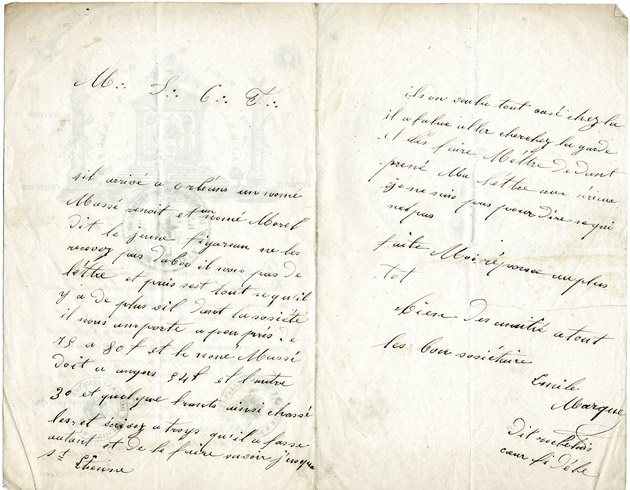 M∴ S∴ C∴ T∴
sil arrivé a orléans un nomé
Massé benoit et un nomé Morel
dit le jeune figareau ne les
recevez pas dabor il nons pas de
léttre et puis sest tout se qu'il
y'a de plus vil dant la sosiété
il nous amporte a peu prés de
75 a 80f et le nomé Massé
doit a angers 24f et l'autre
30 et quelque frants ainsi chassé
les et écrivez a troys qu'il a fasse
autant et de le faire savoir j'usque
St Etienne
ils on voulu tout casé chez la
il a falue alla cherchez la garde
et les faire Méttre dedant
prené Ma léttre au sérieux
je ne suis pas pour dire se qui
nes pas
faite Moi réponse au plus
Tot
bien des amitié a tout
les bon sosiétaire
Emile
Marque
Dit rochelais
cœur fidéle